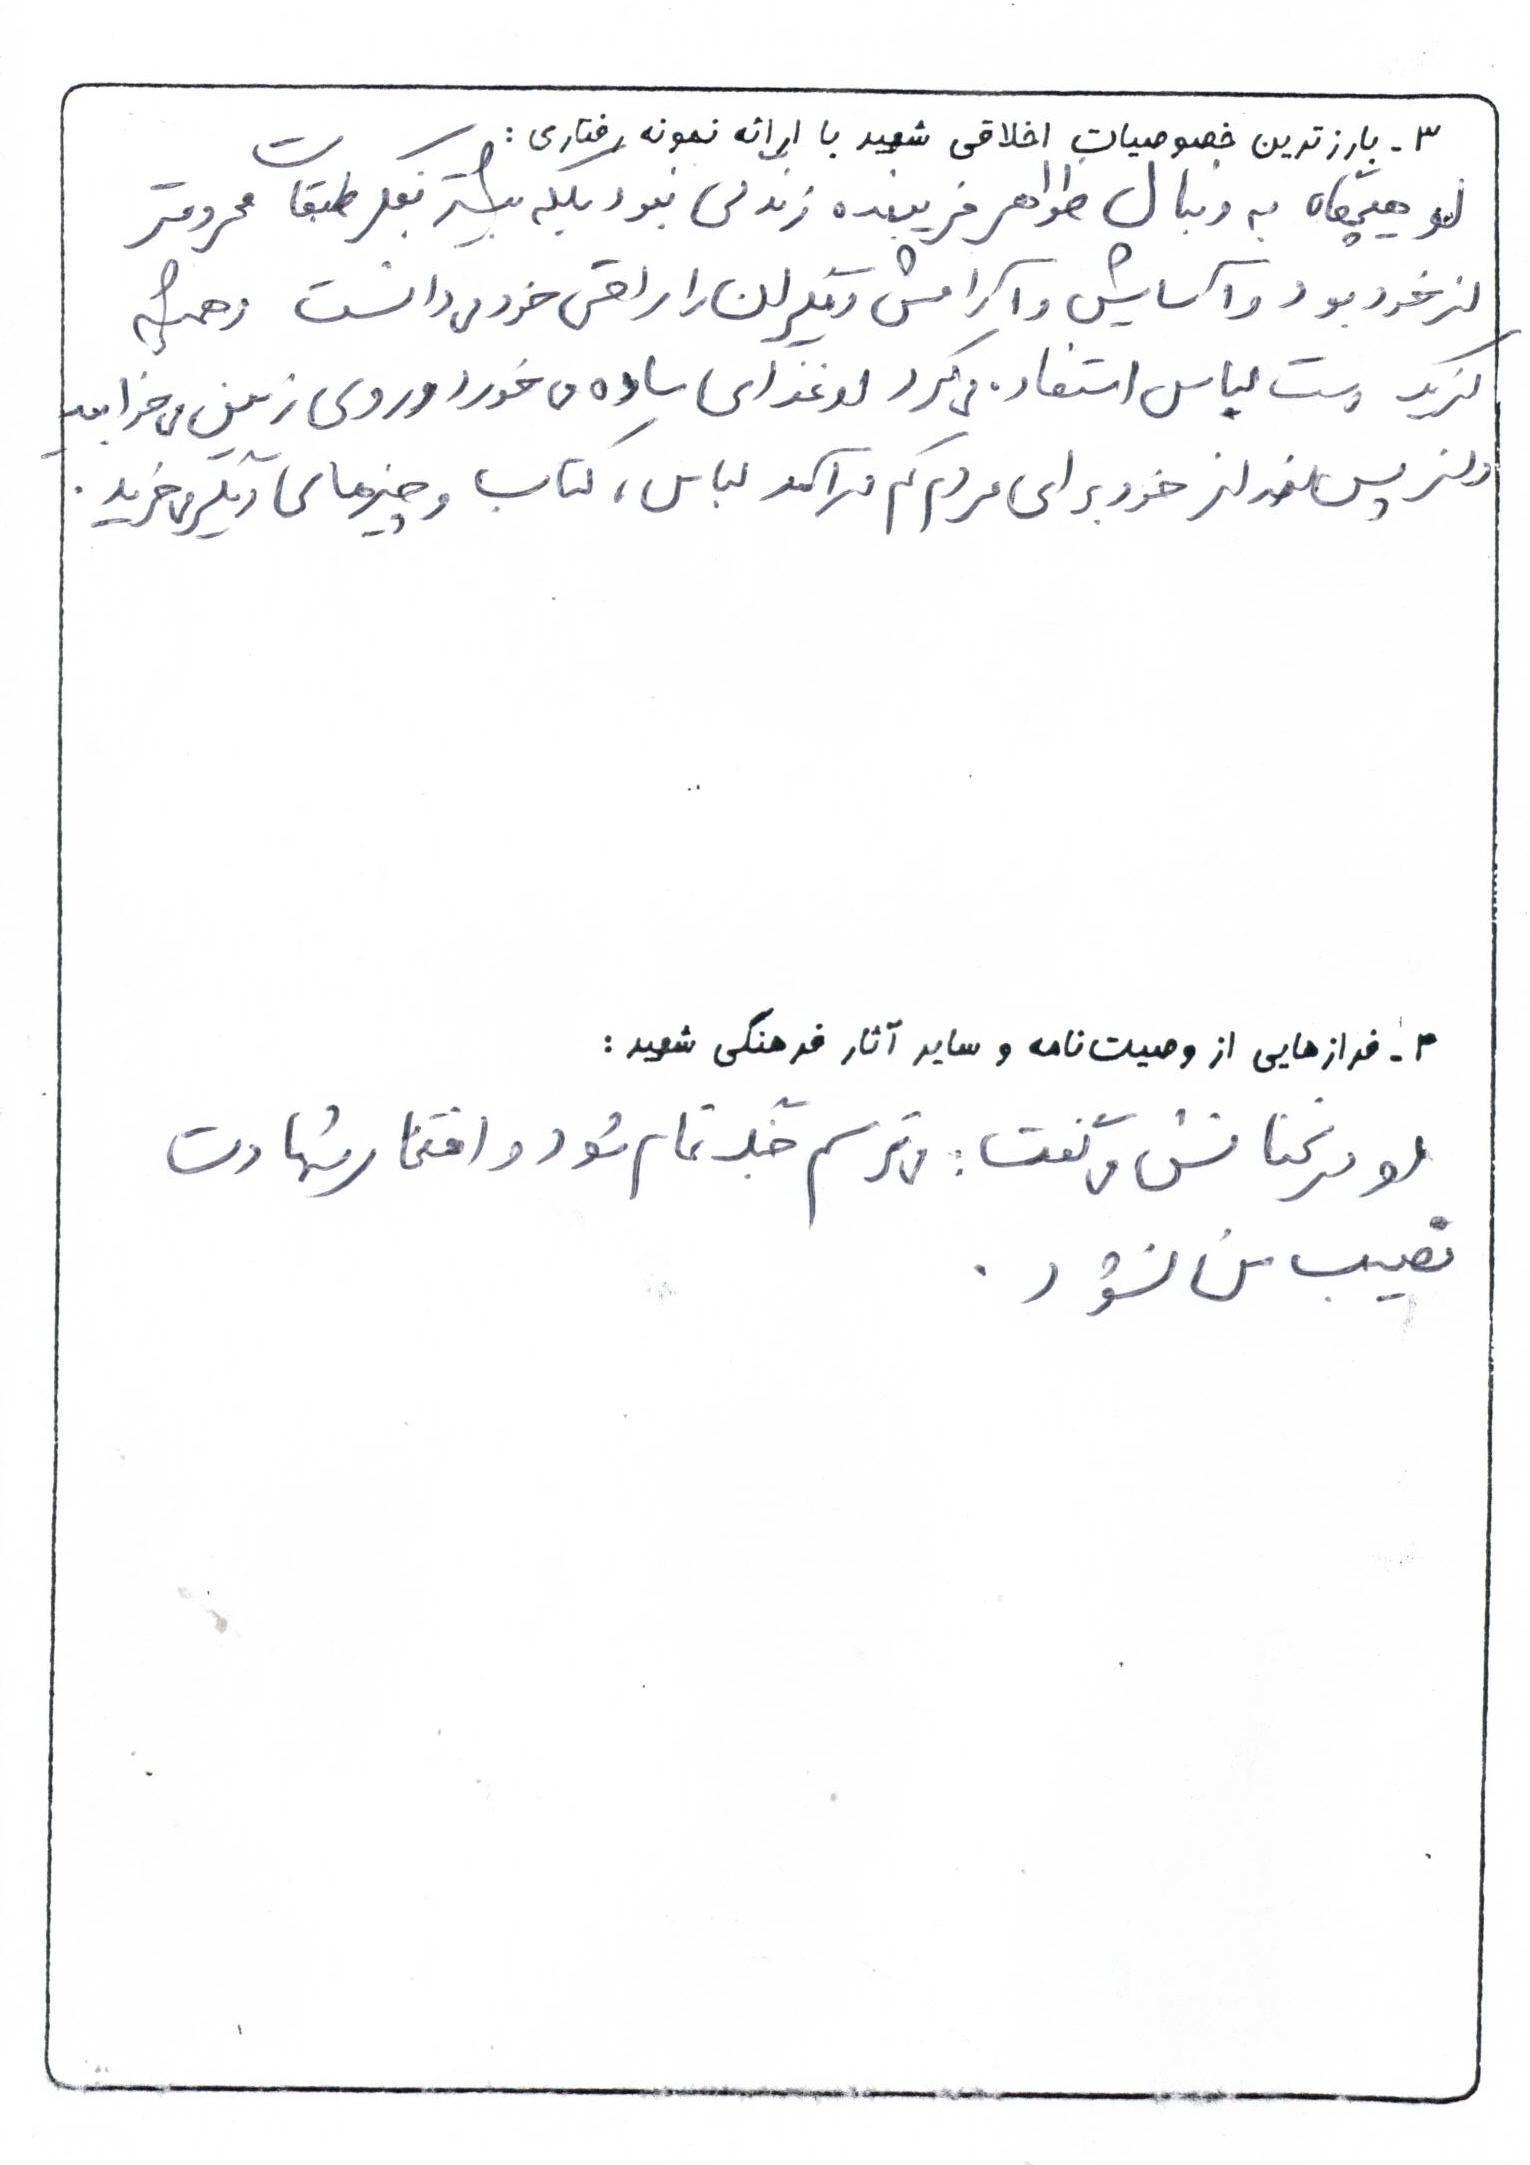 ۳- بارزترین خصوصیات اخلاقی شهید با ارائه نمونه رفتاری :
او هیچگاه به دنبال ظواهر فریبنده زندگی نبود بلکه بیشتر بفکر طبقات محرومتر
از خود بود و آسایش و آرامش دیگران را راحتی خود می دانست و همیشه
از یک دست لباس استفاده می کرد او غذای ساده می خورد و روی زمین می خوابید
و از پس انداز خود برای مردم کم درآمد لباس ، کتاب و چیزهای دیگر می خرید .
۴- فرازهایی از وصیت نامه و سایر آثار فرهنگی شهید :
او در سخنانش می گفت : می ترسم جنگ تمام شود و افتخار شهادت
نصیب من نشود .